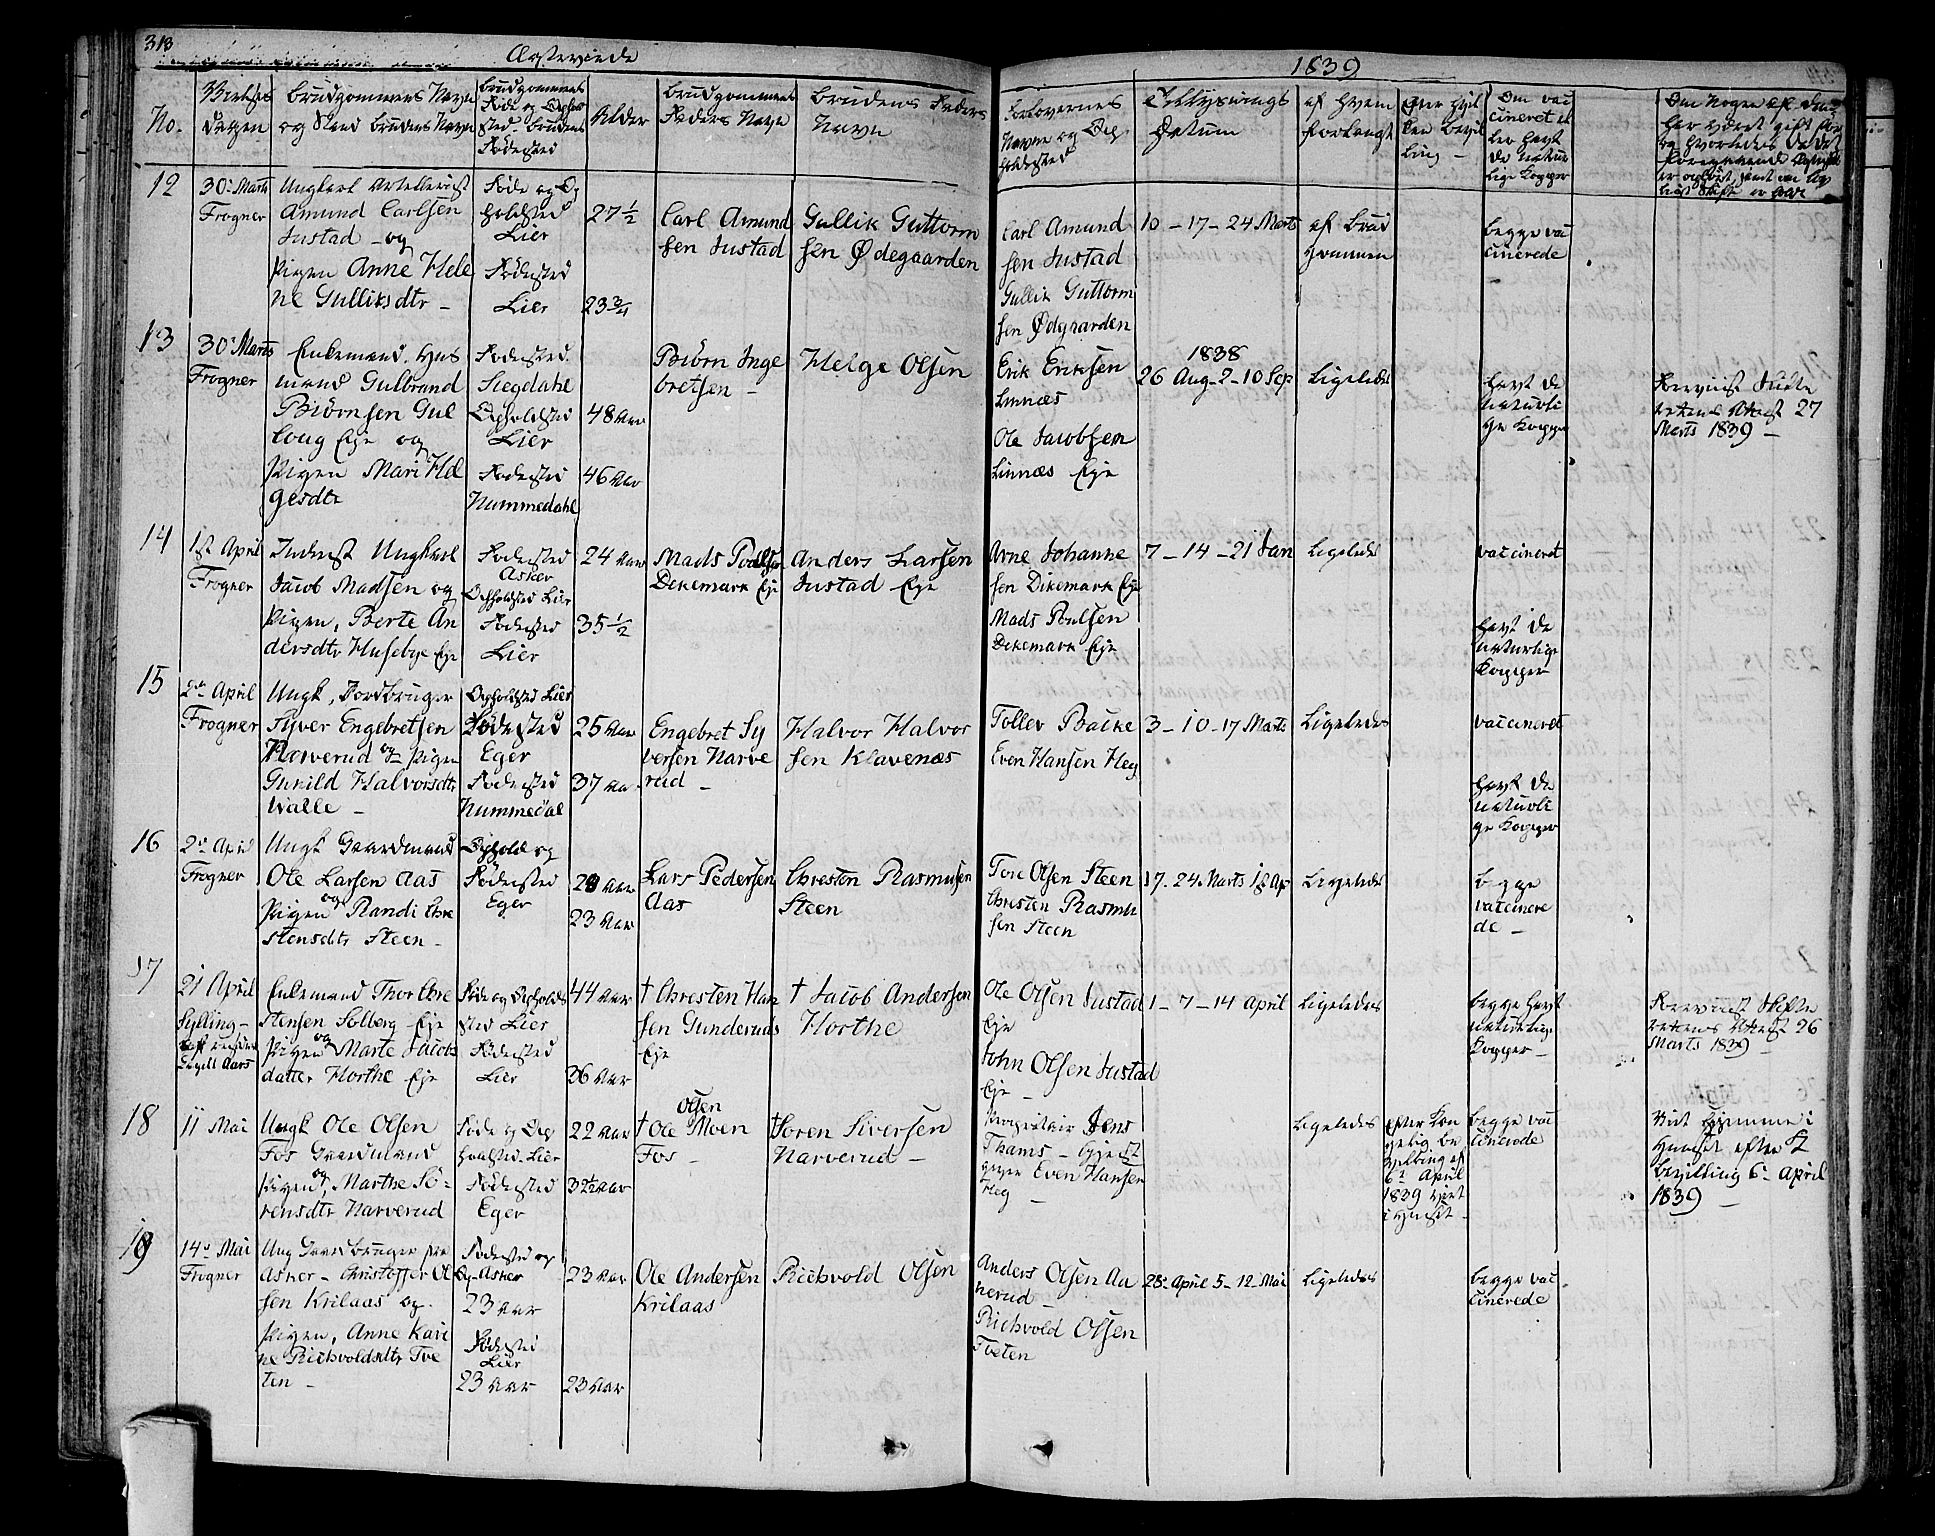 313
Ægteviede
1839
No.
Vielses
Dagen
Brudgommens Navn
og Stand Brudens Navn
Brudgommens
Føde og Ophold
sted - Brudens
Fødested
Alder
Brudgommens
Faders Navn
Brudens Faders
Navn
Forlovernes
Navne og Op
holdsted
Tillysnings
Datum
af hvem
forlangt
Efter hvil
ken bevil
ling -
Om vac
cineret el
ler havt
de natur
lige Kopper
Om Nogen af dem
har været gift før
og hvorledes da det
foregaaende Ægteskab
er opløst, samt om lov
ligt Skifte er holdt
12
30' Marts
Frogner
Ungkarl Artellerist
Amund Carlsen
Justad - og
Pigen Anne Hele
ne Gulliksdtr -
Føde og Op
holdsted
Lier
Fødested
Lier
27 1/2
23 3/4
Carl Amund
sen Justad
Gullik Guttorm
sen Ødegaarden
Carl Amund
sen Justad
Gullik Guttorm
sen Ødgaarden
10 - 17 - 24 Marts
af Brud
gommen
begge vac
cinerede
13
30' Marts
Frogner
Enkemand. Hus
mand Gulbrand
Biörnsen Gul
loug Eje og
Pigen Mari Hel
gesdtr
Fødested.
Siegdahl
Opholdsted
Lier
Fødested
Nummedahl
48 Aar
46 Aar
Biörn Inge
bretsen -
Helge Olsen
Erik Eriksen
Linnæs
Ole Jacobsen
Linnæs Eje
1838
26 Aug - 2 - 10 Sep
Ligeledes
havt de
naturli
ge Kopper
Forevist Skifte
rettens Attest 27
Marts 1839 -
14
1st April
Frogner
Inderst Ungkarl
Jacob Madsen og
Pigen, Berte An
dersdtr Huseby Eje
Fødested
Asker
Opholdsted Lier
Fødested
Lier
24 Aar
35 1/2
Mads Poulsen
Dekemark Eje
Anders Larsen
Justad Eje
Arne Johanne
sen Dikemark Eje
Mads Poulsen
Dikemark Eje
7 - 14 - 21 Jan
Ligeledes
vaccineret
havt de
naturlige
Kopper
15
2den April
Frogner
Ungk. Jordbruger
Syver Engebretsen
Narverud og Pigen
Gunild Halvorsdtr
Walle -
Opholdsted Lier
Fødested
Eger
Fødested
Nummedal
25 Aar
37 Aar
Engebret Sy
versen Narve
rud -
Halvor Halvor
sen Klavenæs
Tollev Backe
Even Hansen Heg
3 - 10 - 17 Marts
Ligeledes
vaccineret
havt de
naturli
ge Kopper
16
2den April
Frogner
Ungk Gaardmand
Ole Larsen Aas
og
Pigen Randi Chre
stensdtr Steen -
Ophold og
Fødested
Eger
29 Aar
23 Aar
Lars Pedersen
Aas
Chresten Rasmusen
Steen
Tore Olsen Steen
Chresten Rasmu
sen Steen
17 - 24 Marts 1st Ap
Ligeledes
begge
vaccinere
de -
17
21 April
Sylling -
Engell Aars
Enkemand Thor Chre
stensen Solberg - Eje
og
Pigen Marte Jacobs
datter Horthe Eje
Føde og Ophold
sted Lier
Fødested
Lier
44 Aar
36 Aar
† Chresten Han
sen Gunderuds
Eje
† Jacob Andersen
Horthe
Ole Olsen Justad
Eje
John Olsen Justad
Eje -
1 - 7 - 14 April
Ligeledes
begge havt
naturlige
Kopper -
Forevist Skifte
rettens Attest 26
Marts 1839 -
18
11 Mai
Ungk Ole Olsen
Fos Gaardmand
og
Pigen, Marthe Sö-
rensdtr Narverud
Føde og Op
holdsted - Lier
Fødested
Eger
22 Aar
31 1/2 Aar
Olsen
† Ole Moen
Fos -
† Sören Siversen
Narverud -
Proprietair Jens
Thams -
Even Hansen
Heg -
Ligeledes
efter Kon
gelig be
villing af
6te April
1839 viet
i Huset -
begge vac
cinerede
Viet hjemme i
Huuset efter K
bevilling 6te April
1839 -
19
14' Mai
Frogner
Ung Gaardbruger fra
Asker - Christoffer Ol
sen Krilaas og.
Pigen, Anne Kari
ne Richvoldsdtr Tve
ten -
Fødested og
Op - Asker
23 Aar
Fødested
Lier
23 Aar
23 Aar
23 Aar
Ole Andersen
Krilaas
Richvold Olsen
Anders Olsen Aa
nerud -
Richvold Olsen
Tveten
28' April 5 - 12 - Mai
Ligeledes
begge vac
cinerede